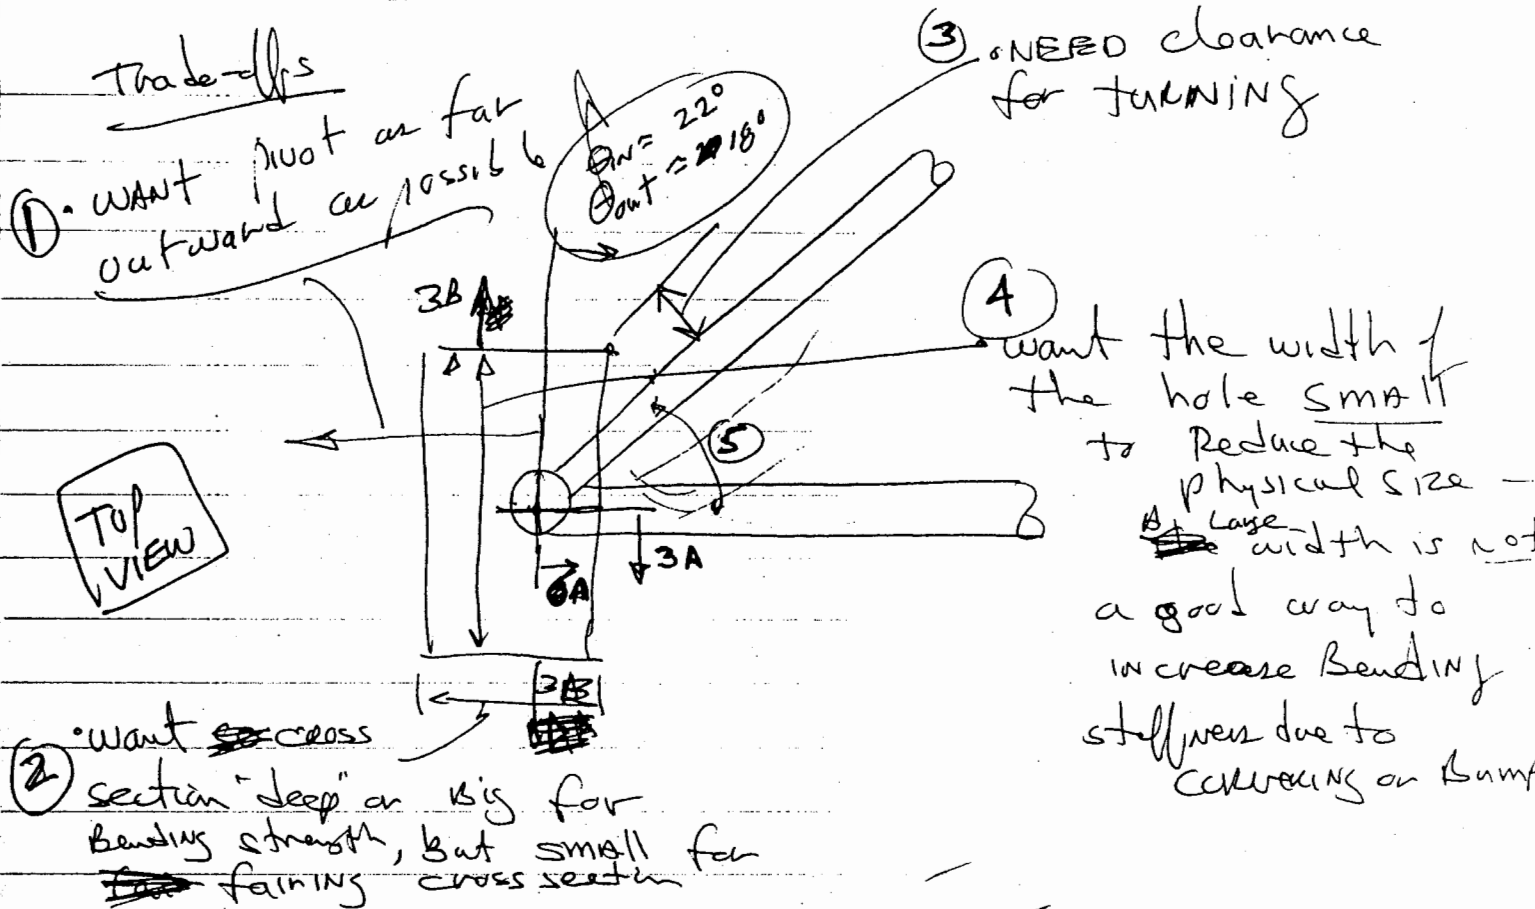 Trade-offs
① • WANT pivot as far
outward as possible
θIN = 22°
θout = 18°
③ • NEED clearance
for TURNING
3B
④
• want the width of
the hole SMALL
to Reduce the
physical size —
A Large width is not
a good way to
increase Bending
stiffness due to
CORNERING or Bump
⑤
TOP
VIEW
3A
② • want cross
section "deep" or Big for
Bending strength, but SMALL for
fairing cross section